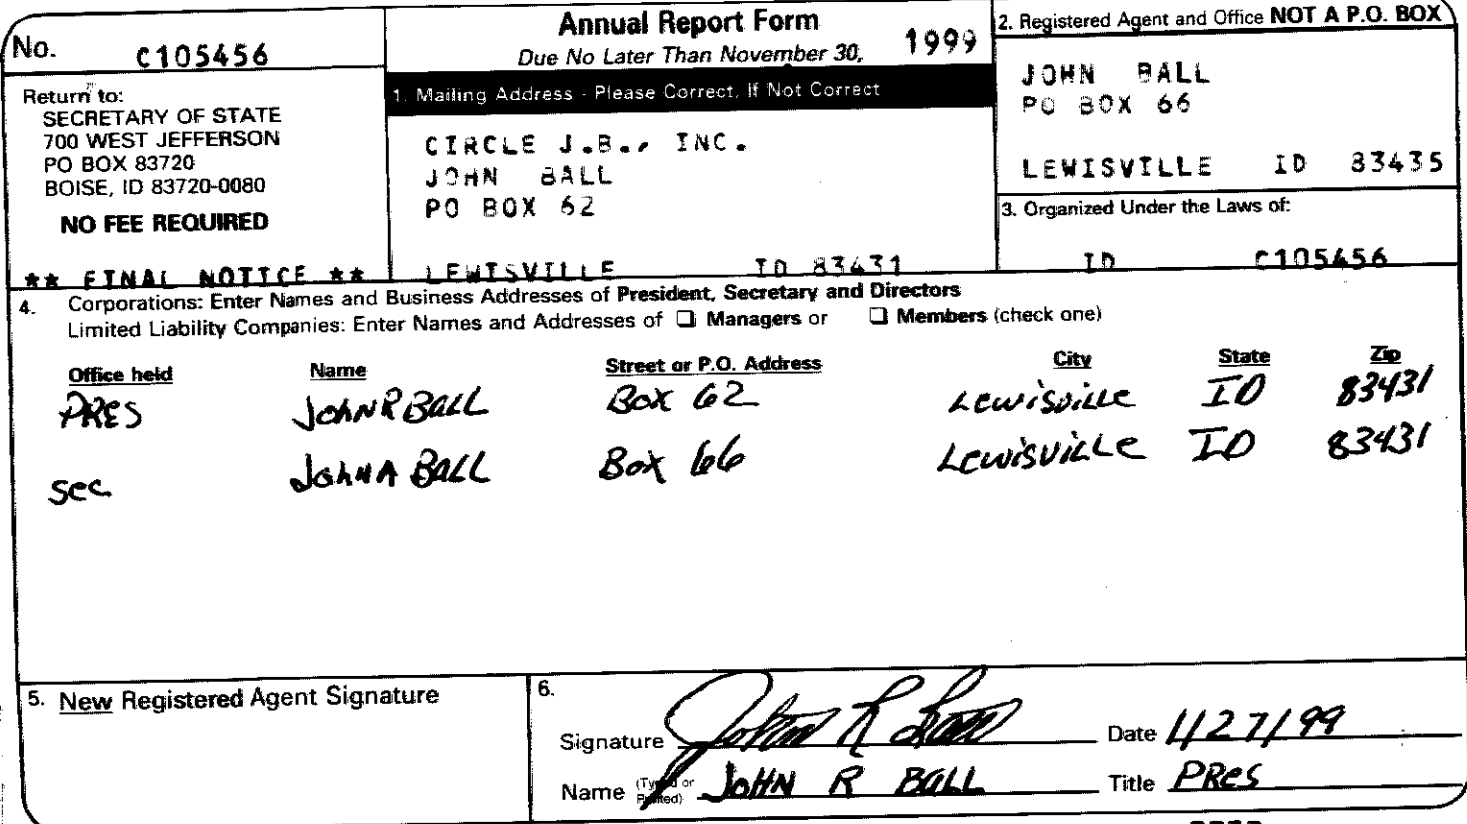 No. C105456
Return to:
SECRETARY OF STATE
700 WEST JEFFERSON
PO BOX 83720
BOISE, ID 83720-0080
NO FEE REQUIRED
** FINAL NOTICE **
Annual Report Form
Due No Later Than November 30, 1999
1. Mailing Address - Please Correct, If Not Correct
CIRCLE J.B., INC.
JOHN BALL
PO BOX 62
LEWISVILLE ID 83431
2. Registered Agent and Office NOT A P.O. BOX
JOHN BALL
PO BOX 66
LEWISVILLE ID 83435
3. Organized Under the Laws of:
ID C105456
4. Corporations: Enter Names and Business Addresses of President, Secretary and Directors
Limited Liability Companies: Enter Names and Addresses of ❑ Managers or ❑ Members (check one)
Office held Name Street or P.O. Address City State Zip
PRES JOHN R BALL Box 62 Lewisville ID 83431
Sec JOHN A BALL Box 66 Lewisville ID 83431
5. New Registered Agent Signature
6.
Signature John R Ball Date 1/27/99
Name (Typed or Printed) JOHN R BALL Title PRES